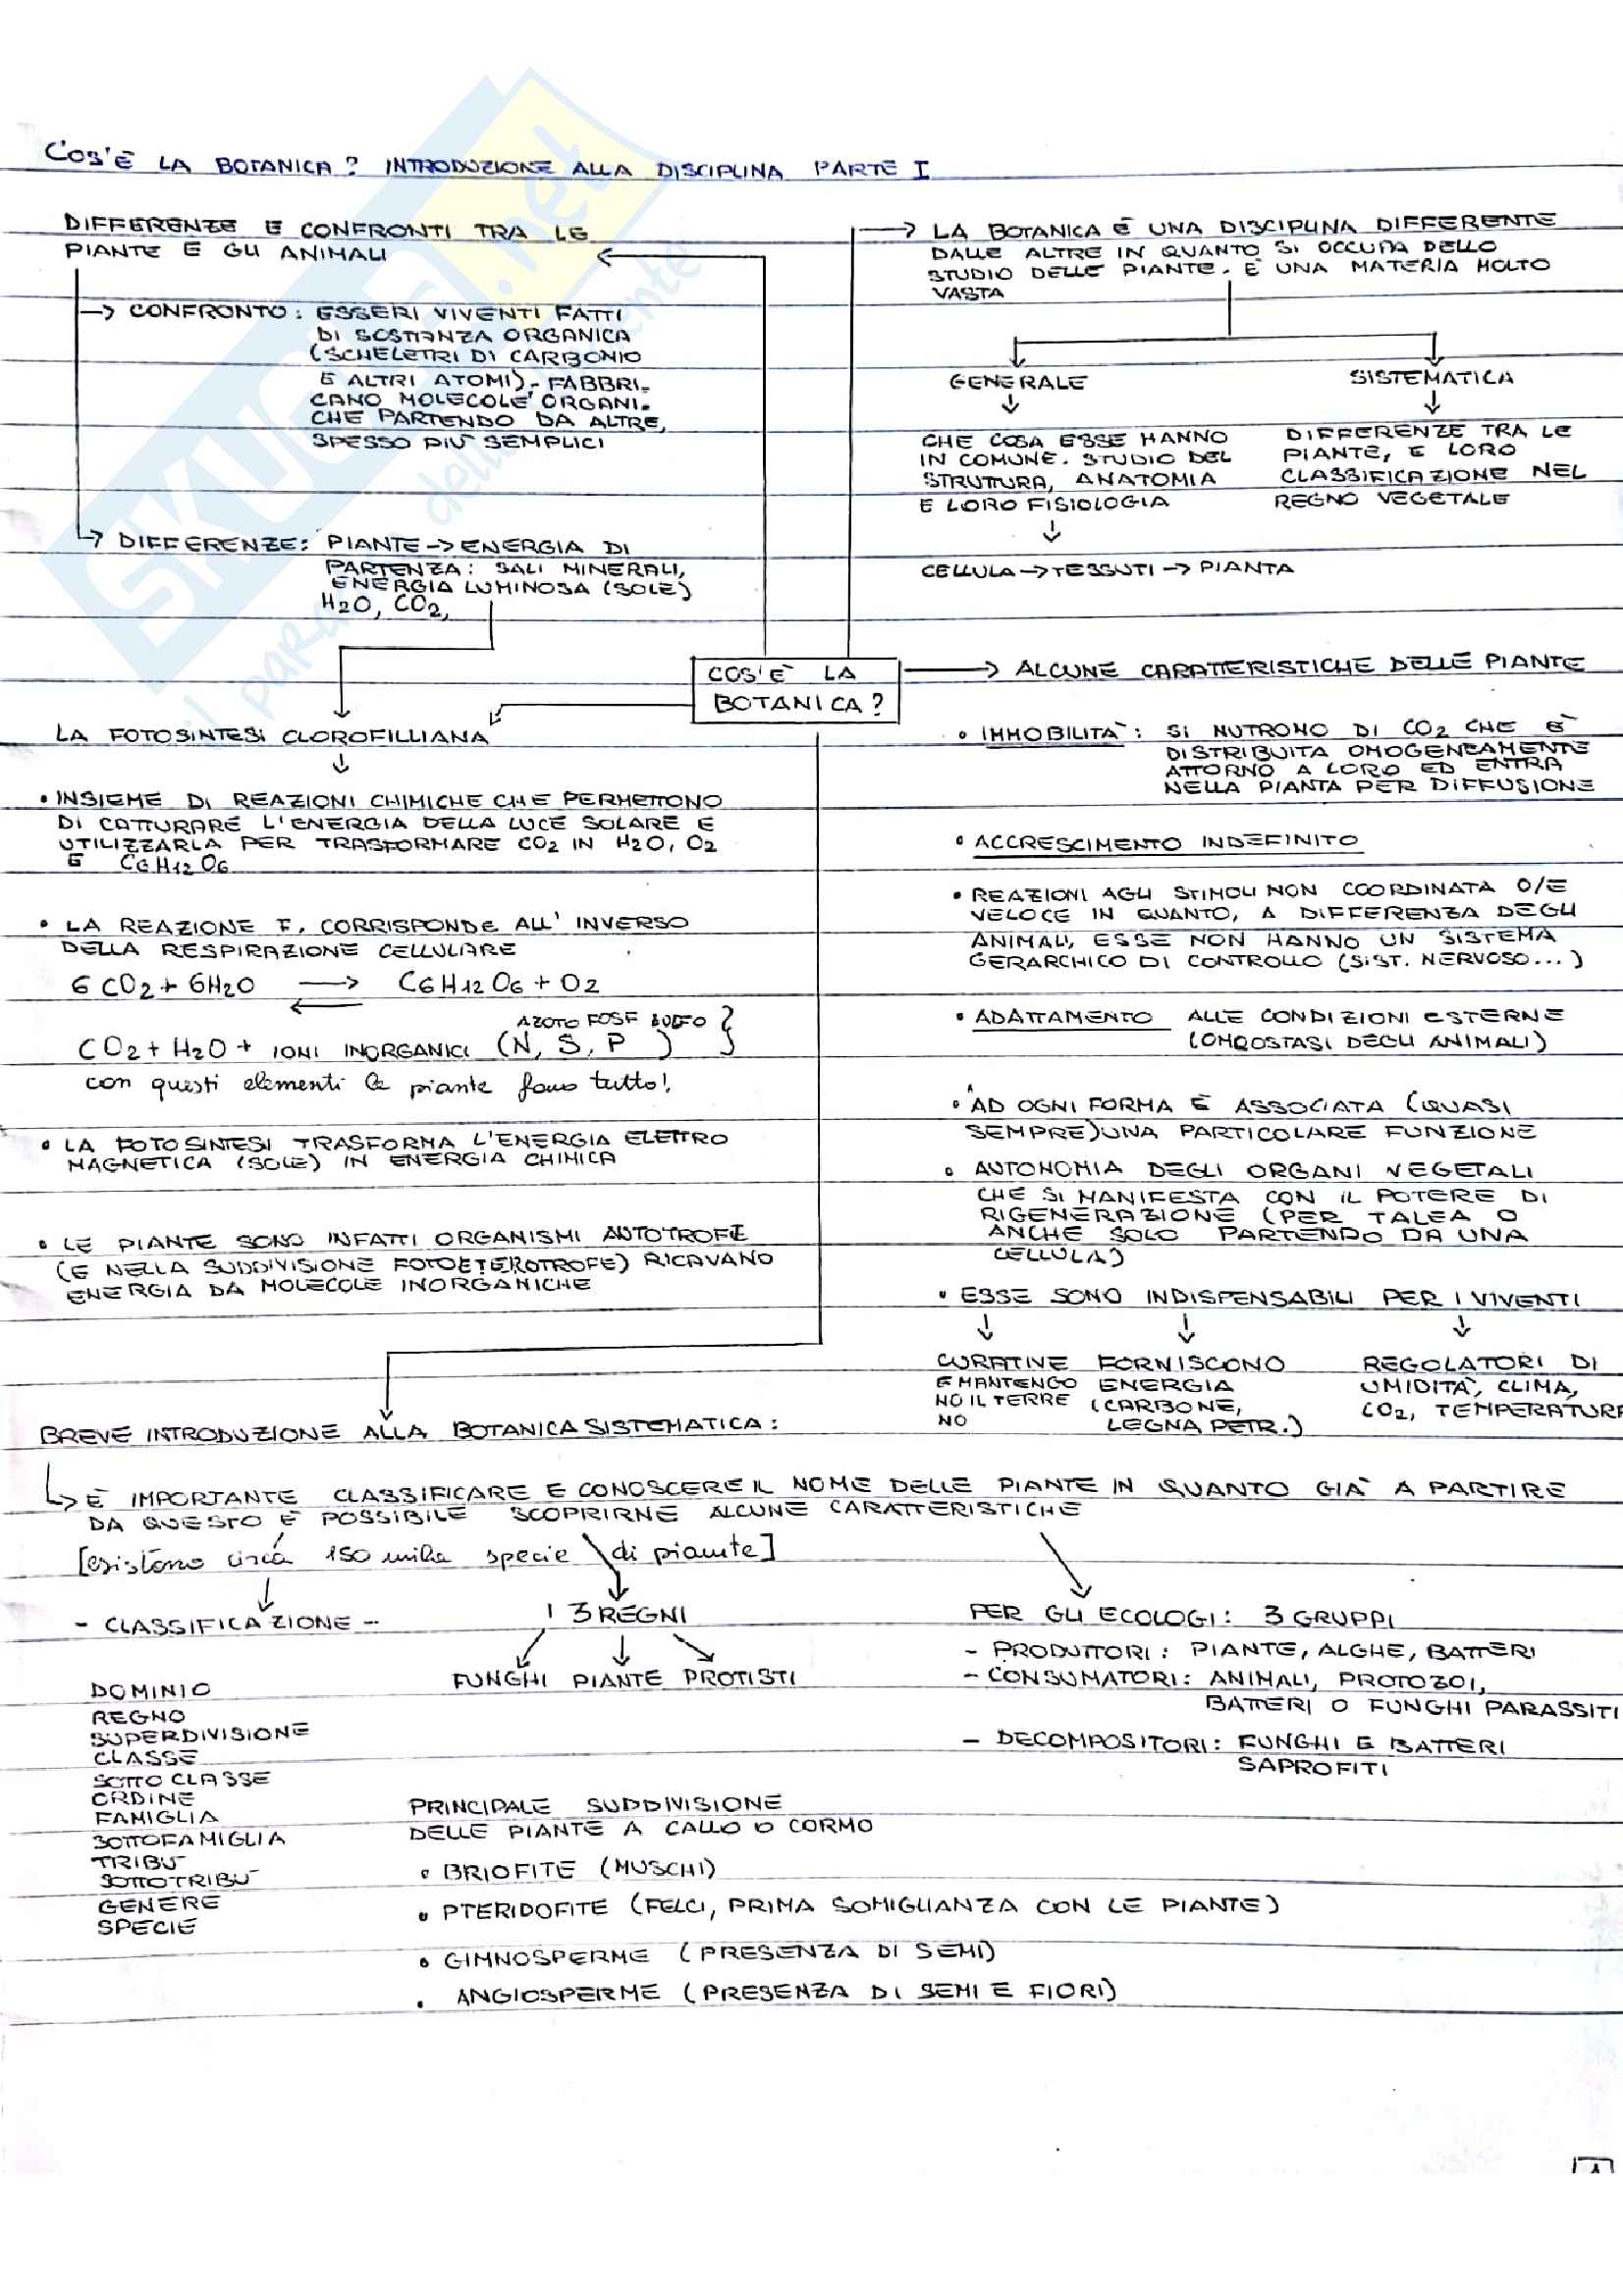 COS'È LA BOTANICA? INTRODUZIONE ALLA DISCIPLINA PARTE I
DIFFERENZE E CONFRONTI TRA LE
PIANTE E GLI ANIMALI
→ CONFRONTO: ESSERI VIVENTI FATTI
DI SOSTANZA ORGANICA
(SCHELETRI DI CARBONIO
E ALTRI ATOMI). FABBRI-
CANO MOLECOLE ORGANI-
CHE PARTENDO DA ALTRE,
SPESSO PIÙ SEMPLICI
→ DIFFERENZE: PIANTE → ENERGIA DI
PARTENZA: SALI MINERALI,
ENERGIA LUMINOSA (SOLE)
H2O, CO2,
→ LA BOTANICA È UNA DISCIPLINA DIFFERENTE
DALLE ALTRE IN QUANTO SI OCCUPA DELLO
STUDIO DELLE PIANTE. È UNA MATERIA MOLTO
VASTA
GENERALE
CHE COSA ESSE HANNO
IN COMUNE. STUDIO DEL
STRUTURA, ANATOMIA
E LORO FISIOLOGIA
CELLULA → TESSUTI → PIANTA
SISTEMATICA
DIFFERENZE TRA LE
PIANTE, E LORO
CLASSIFICAZIONE NEL
REGNO VEGETALE
COS'È LA
BOTANICA?
LA FOTOSINTESI CLOROFILLIANA
• INSIEME DI REAZIONI CHIMICHE CHE PERMETTONO
DI CATTURARE L'ENERGIA DELLA LUCE SOLARE E
UTILIZZARLA PER TRASFORMARE CO2 IN H2O, O2
E C6H12O6
• LA REAZIONE F. CORRISPONDE ALL'INVERSO
DELLA RESPIRAZIONE CELLULARE
6 CO2 + 6H2O → C6H12O6 + O2
←
AZOTO FOSF SOLFO
CO2 + H2O + IONI INORGANICI (N, S, P ) }
con questi elementi le piante fano tutto!
• LA FOTOSINTESI TRASFORMA L'ENERGIA ELETTRO
MAGNETICA (SOLE) IN ENERGIA CHIMICA
• LE PIANTE SONO INFATTI ORGANISMI AUTOTROFE
(E NELLA SUDDIVISIONE FOTOETEROTROFE) RICAVANO
ENERGIA DA MOLECOLE INORGANICHE
→ ALCUNE CARATTERISTICHE DELLE PIANTE
• IMMOBILITÀ: SI NUTRONO DI CO2 CHE È
DISTRIBUITA OMOGENEAMENTE
ATTORNO A LORO ED ENTRA
NELLA PIANTA PER DIFFUSIONE
• ACCRESCIMENTO INDEFINITO
• REAZIONI AGLI STIMOLI NON COORDINATA O/E
VELOCE IN QUANTO, A DIFFERENZA DEGLI
ANIMALI, ESSE NON HANNO UN SISTEMA
GERARCHICO DI CONTROLLO (SIST. NERVOSO...)
• ADATTAMENTO ALLE CONDIZIONI ESTERNE
(OMEOSTASI DEGLI ANIMALI)
• AD OGNI FORMA È ASSOCIATA (QUASI
SEMPRE) UNA PARTICOLARE FUNZIONE
• AUTONOMIA DEGLI ORGANI VEGETALI
CHE SI MANIFESTA CON IL POTERE DI
RIGENERAZIONE (PER TALEA O
ANCHE SOLO PARTENDO DA UNA
CELLULA)
• ESSE SONO INDISPENSABILI PER I VIVENTI
CURATIVE
E MANTENGO
NO IL TERRE
NO
FORNISCONO
ENERGIA
(CARBONE,
LEGNA PETR.)
REGOLATORI DI
UMIDITÀ, CLIMA,
CO2, TEMPERATURA
BREVE INTRODUZIONE ALLA BOTANICA SISTEMATICA:
→ È IMPORTANTE CLASSIFICARE E CONOSCERE IL NOME DELLE PIANTE IN QUANTO GIÀ A PARTIRE
DA QUESTO È POSSIBILE SCOPRIRNE ALCUNE CARATTERISTICHE
[esistono circa 150 milia specie di piante]
- CLASSIFICAZIONE -
DOMINIO
REGNO
SUPERDIVISIONE
CLASSE
SOTTO CLASSE
ORDINE
FAMIGLIA
SOTTOFAMIGLIA
TRIBÙ
SOTTOTRIBÙ
GENERE
SPECIE
I 3 REGNI
FUNGHI PIANTE PROTISTI
PER GLI ECOLOGI: 3 GRUPPI
- PRODUTTORI: PIANTE, ALGHE, BATTERI
- CONSUMATORI: ANIMALI, PROTOZOI,
BATTERI O FUNGHI PARASSITI
- DECOMPOSITORI: FUNGHI E BATTERI
SAPROFITI
PRINCIPALE SUDDIVISIONE
DELLE PIANTE A CALLO O CORMO
• BRIOFITE (MUSCHI)
• PTERIDOFITE (FELCI, PRIMA SOMIGLIANZA CON LE PIANTE)
• GIMNOSPERME (PRESENZA DI SEMI)
• ANGIOSPERME (PRESENZA DI SEMI E FIORI)